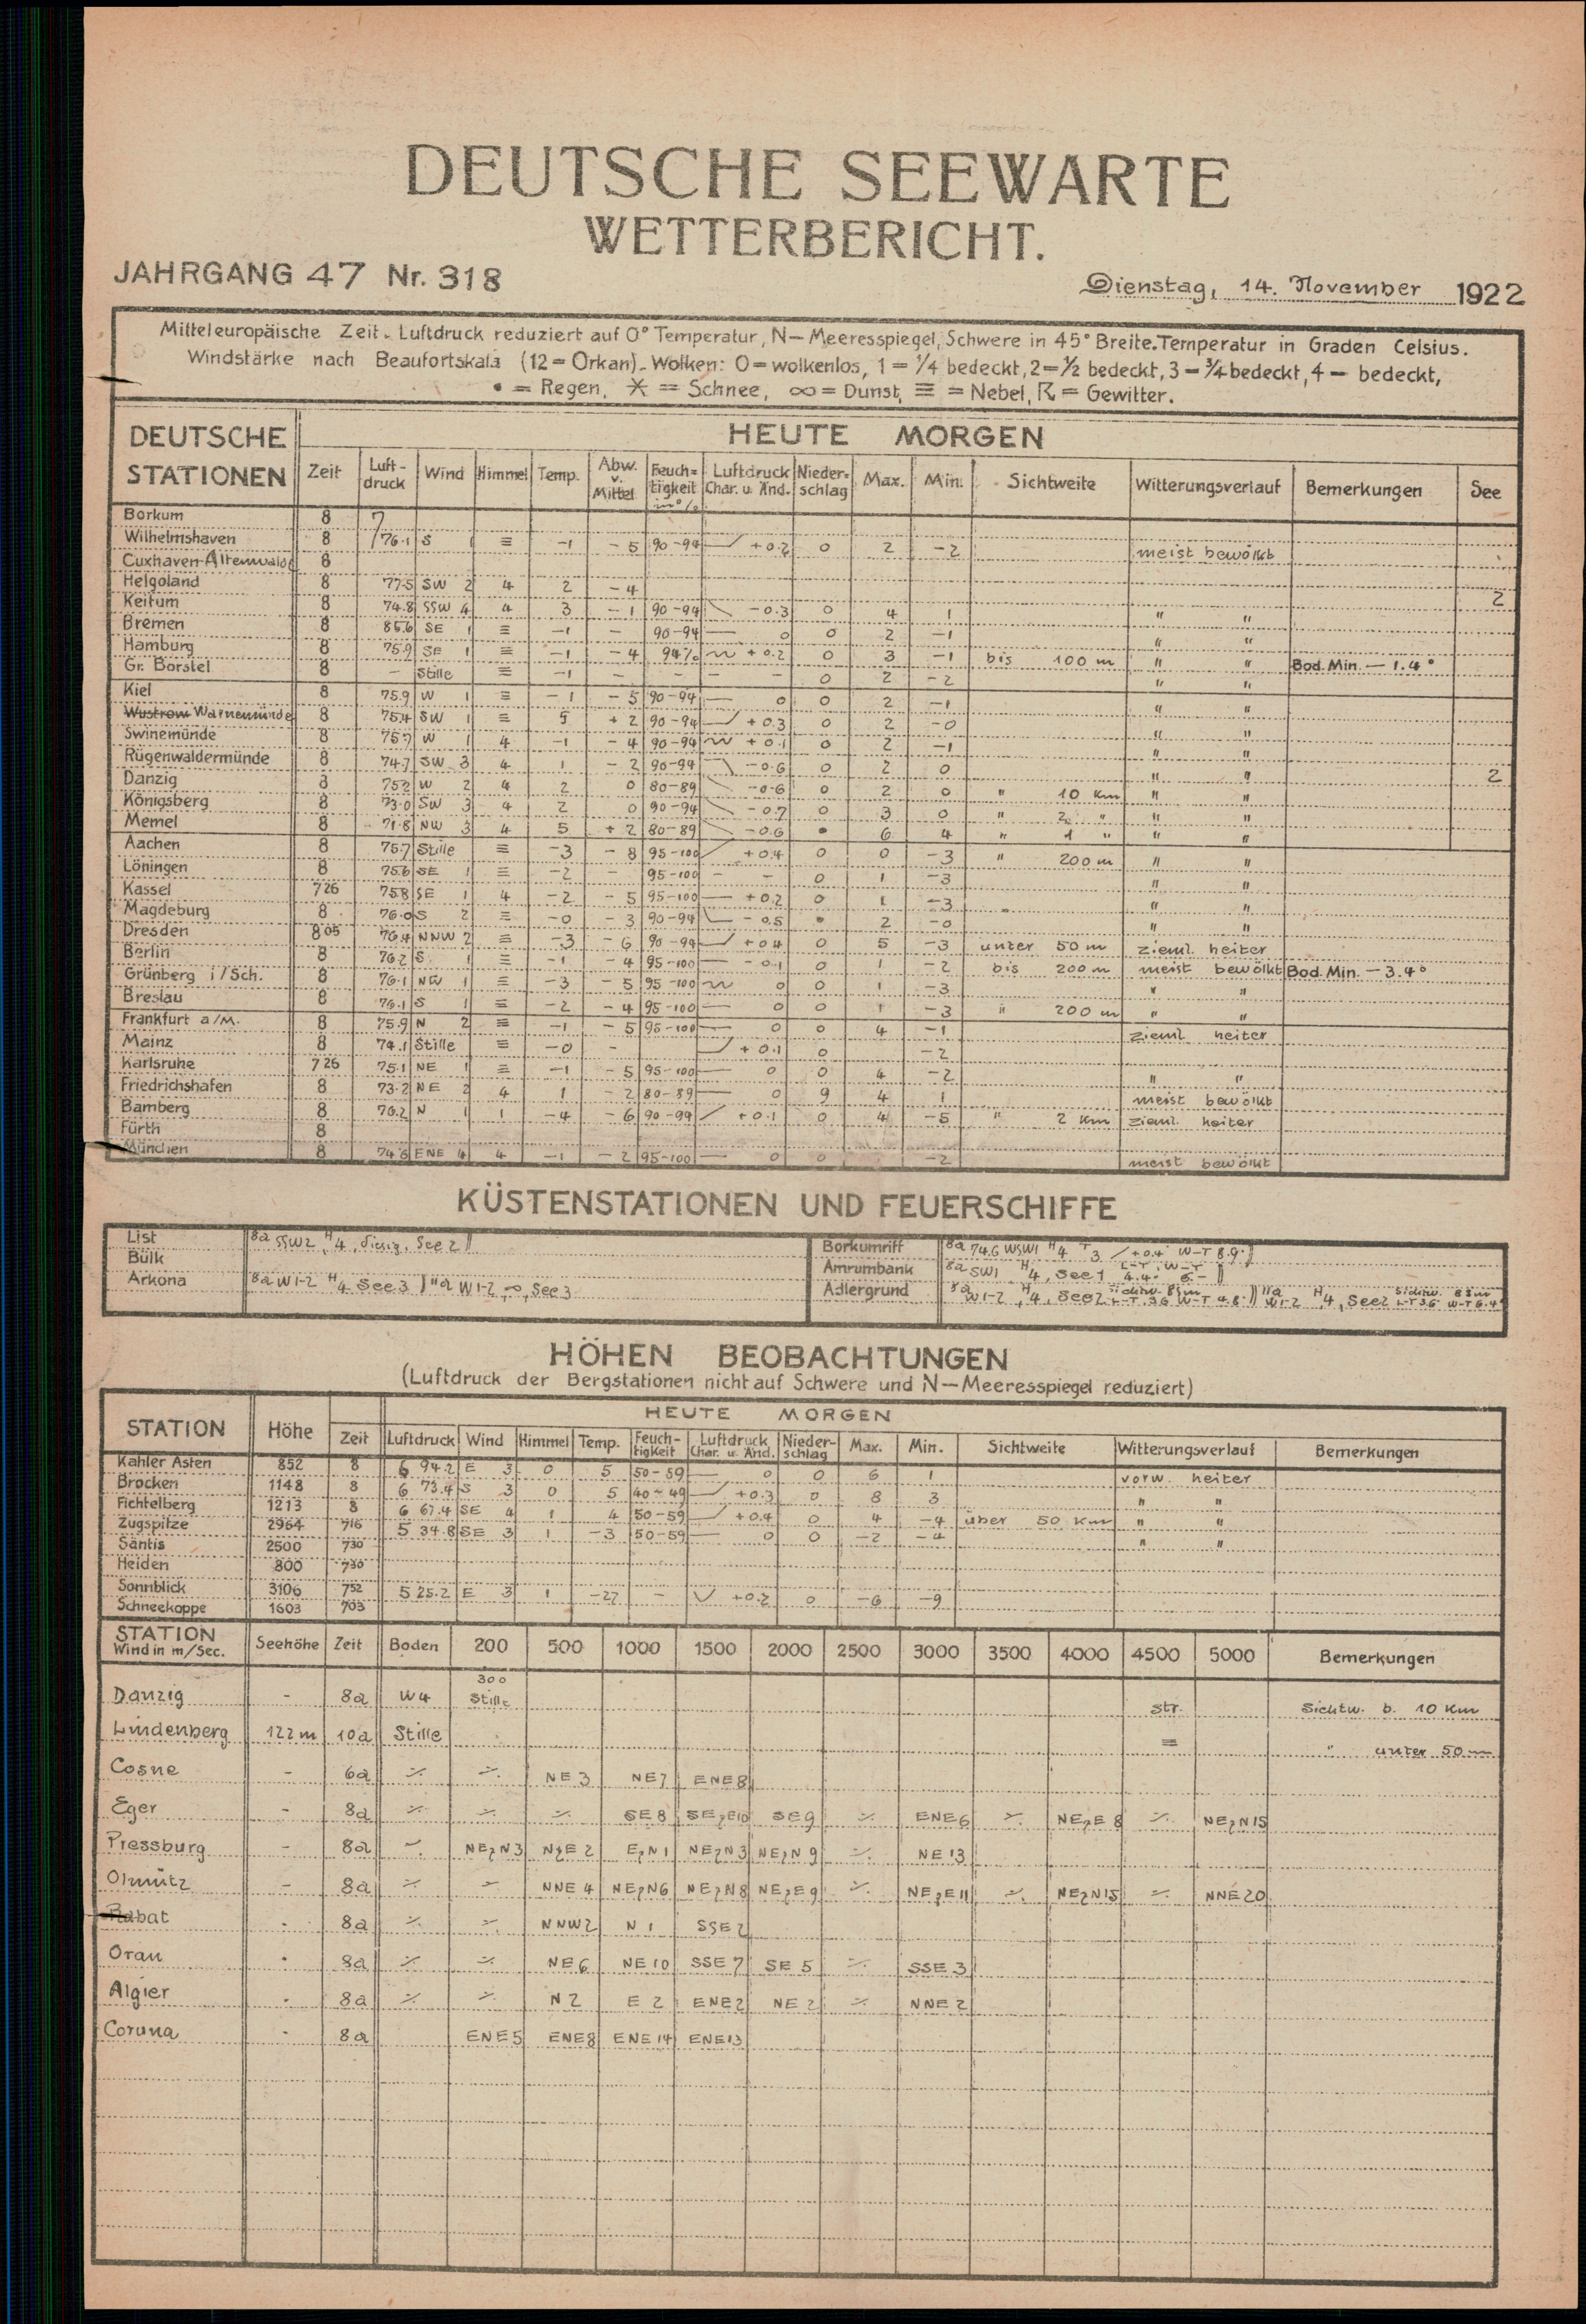 DEUTSCHE SEEWARTE
WETTERBERICHT.
JAHRGANG 47 Nr. 318
Dienstag, 14. November 1922
Mitteleuropäische Zeit. Luftdruck reduziert auf 0° Temperatur, N—Meeresspiegel, Schwere in 45° Breite. Temperatur in Graden Celsius.
Windstärke nach Beaufortskala (12=Orkan). Wolken: 0=wolkenlos, 1=¼ bedeckt, 2=½ bedeckt, 3=¾ bedeckt, 4— bedeckt,
• = Regen, ✶ = Schnee, ∞ = Dunst, ≡ = Nebel, ☈ = Gewitter.
DEUTSCHE STATIONEN HEUTE MORGEN
Zeit Luft-druck Wind Himmel Temp. Abw. v. Mittel Feuch=tigkeit in % Luftdruck Char. u. Änd. Nieder-schlag Max. Min. Sichtweite Witterungsverlauf Bemerkungen See
Borkum 8 7
Wilhelmshaven 8 76.1 S 1 ≡ -1 -5 90-94 +0.2 0 2 -2 meist bewölkt
Cuxhaven-Altenwalde 8
Helgoland 8 77.5 SW 2 4 2 -4 2
Keitum 8 74.8 SSW 4 4 3 -1 90-94 -0.3 0 4 1 " "
Bremen 8 85.6 SE 1 ≡ -1 - 90-94 0 0 2 -1 " "
Hamburg 8 75.9 SE 1 ≡ -1 -4 94% +0.2 0 3 -1 bis 100 m " " Bod. Min. -1.4°
Gr. Borstel 8 - Stille ≡ -1 - - - - 0 2 -2 " "
Kiel 8 75.9 W 1 ≡ -1 -5 90-94 0 0 2 -1 " "
Wustrow Warnemünde 8 75.4 SW 1 ≡ 5 +2 90-94 +0.3 0 2 -0 " "
Swinemünde 8 75.7 W 1 4 -1 -4 90-94 +0.1 0 2 -1 " "
Rügenwaldermünde 8 74.7 SW 3 4 1 -2 90-94 -0.6 0 2 0 " " 2
Danzig 8 75.2 W 2 4 2 0 80-89 -0.6 0 2 0 " 10 Km " "
Königsberg 8 73.0 SW 3 4 2 0 90-94 -0.7 0 3 0 " 2 " " "
Memel 8 71.8 NW 3 4 5 +2 80-89 -0.6 • 6 4 " 1 " " "
Aachen 8 75.7 Stille ≡ -3 -8 95-100 +0.4 0 0 -3 " 200 m " "
Löningen 8 75.6 SE 1 ≡ -2 - 95-100 - - 0 1 -3 " "
Kassel 7 26 75.8 SE 1 4 -2 -5 95-100 +0.2 0 1 -3 " "
Magdeburg 8 76.0 S 2 ≡ -0 -3 90-94 -0.5 • 2 -0 " "
Dresden 8 05 76.4 NNW 2 ≡ -3 -6 90-94 +0.4 0 5 -3 unter 50 m zieml. heiter
Berlin 8 76.2 S 1 ≡ -1 -4 95-100 -0.1 0 1 -2 bis 200 m meist bewölkt Bod. Min. -3.4°
Grünberg i/Sch. 8 76.1 NW 1 ≡ -3 -5 95-100 0 0 1 -3 " "
Breslau 8 76.1 S 1 ≡ -2 -4 95-100 0 0 1 -3 " 200 m " "
Frankfurt a/M. 8 75.9 N 2 ≡ -1 -5 95-100 0 0 4 -1 zieml. heiter
Mainz 8 74.1 Stille ≡ -0 - +0.1 0 -2
Karlsruhe 7 26 75.1 NE 1 ≡ -1 -5 95-100 0 0 4 -2 " "
Friedrichshafen 8 73.2 NE 2 4 1 -2 80-89 0 9 4 1 meist bewölkt
Bamberg 8 76.2 N 1 1 -4 -6 90-94 +0.1 0 4 -5 " 2 Km zieml. heiter
Fürth 8
München 8 74.6 ENE 4 4 -1 -2 95-100 0 0 -2 meist bewölkt
KÜSTENSTATIONEN UND FEUERSCHIFFE
List 8a SSW2, H4, diesig, See 2
Bülk
Arkona 8a W1-2 H4, See 3 11a W1-2, See 3
Borkumriff 8a 74.6 WSW1 H4 T3 +0.4 W-T 8.9°
Amrumbank 8a SW1 H4, See 1 L-T 4.4° W-T 6.-
Adlergrund 8a W1-2, H4, See 2 L-T 3.6 W-T 4.8° 11a W1-2 H4, See 2 Sichtw. 8 sm L-T 3.6 W-T 6.4°
HÖHEN BEOBACHTUNGEN
(Luftdruck der Bergstationen nicht auf Schwere und N—Meeresspiegel reduziert)
STATION Höhe HEUTE MORGEN
Zeit Luftdruck Wind Himmel Temp. Feuch-tigkeit Luftdruck Char. u. Änd. Nieder-schlag Max. Min. Sichtweite Witterungsverlauf Bemerkungen
Kahler Asten 852 8 6 94.2 E 3 0 5 50-59 0 0 6 1 vorw. heiter
Brocken 1148 8 6 73.4 S 3 0 5 40-49 +0.3 0 8 3 " "
Fichtelberg 1213 8 6 67.4 SE 4 1 4 50-59 +0.4 0 4 -4 über 50 Km " "
Zugspitze 2964 7 16 5 34.8 SE 3 1 -3 50-59 0 0 -2 -4 " "
Säntis 2500 7 30
Heiden 800 7 30
Sonnblick 3106 7 52 5 25.2 E 3 1 -27 - +0.2 0 -6 -9
Schneekoppe 1603 7 03
STATION Wind in m/Sec. Seehöhe Zeit Boden 200 500 1000 1500 2000 2500 3000 3500 4000 4500 5000 Bemerkungen
300
Danzig - 8a W4 Stille str. Sichtw. b. 10 Km
Lindenberg 122 m 10a Stille ≡ " unter 50 m
Cosne - 6a ⁒ ⁒ NE 3 NE 7 ENE 8
Eger - 8a ⁒ ⁒ ⁒ SE 8 SEzE10 SE 9 ⁒ ENE 6 ⁒ NEzE 8 ⁒ NEzN 15
Pressburg - 8a ⁒ NEzN 3 NzE 2 EzN 1 NEzN 3 NEzN 9 ⁒ NE 13
Olmütz - 8a ⁒ ⁒ NNE 4 NEzN6 NEzN8 NEzE9 ⁒ NEzE11 ⁒ NEzN15 ⁒ NNE 20
Rabat - 8a ⁒ ⁒ NNW2 N 1 SSE 2
Oran - 8a ⁒ ⁒ NE 6 NE 10 SSE 7 SE 5 ⁒ SSE 3
Algier - 8a ⁒ ⁒ N 2 E 2 ENE2 NE 2 ⁒ NNE 2
Coruna - 8a ENE 5 ENE8 ENE 14 ENE13